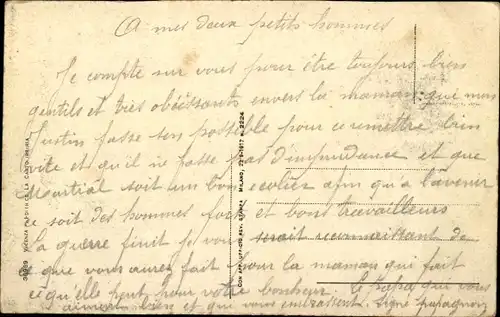 A mes deux petits hommes
Je compte sur vous pour être toujours bien
gentils et très obéissants envers la maman, que mon
Justin fasse son possible pour se remettre bien
vite et qu'il ne fasse pas d'imprudance et que
Martial soit un bon ecolier afin qu'a l'avenir
ce soit des hommes forts et bons travailleurs
La guerre finit je vous serait reconnaissant de
ce que vous aurez fait pour la maman qui fait
ce qu'elle peut pour votre bonheur. Le papa qui vous
aiment bien et qui vous embrassent. Signé
CON APPROV. REV. STAMPA MILANO, 1917 N. 2224